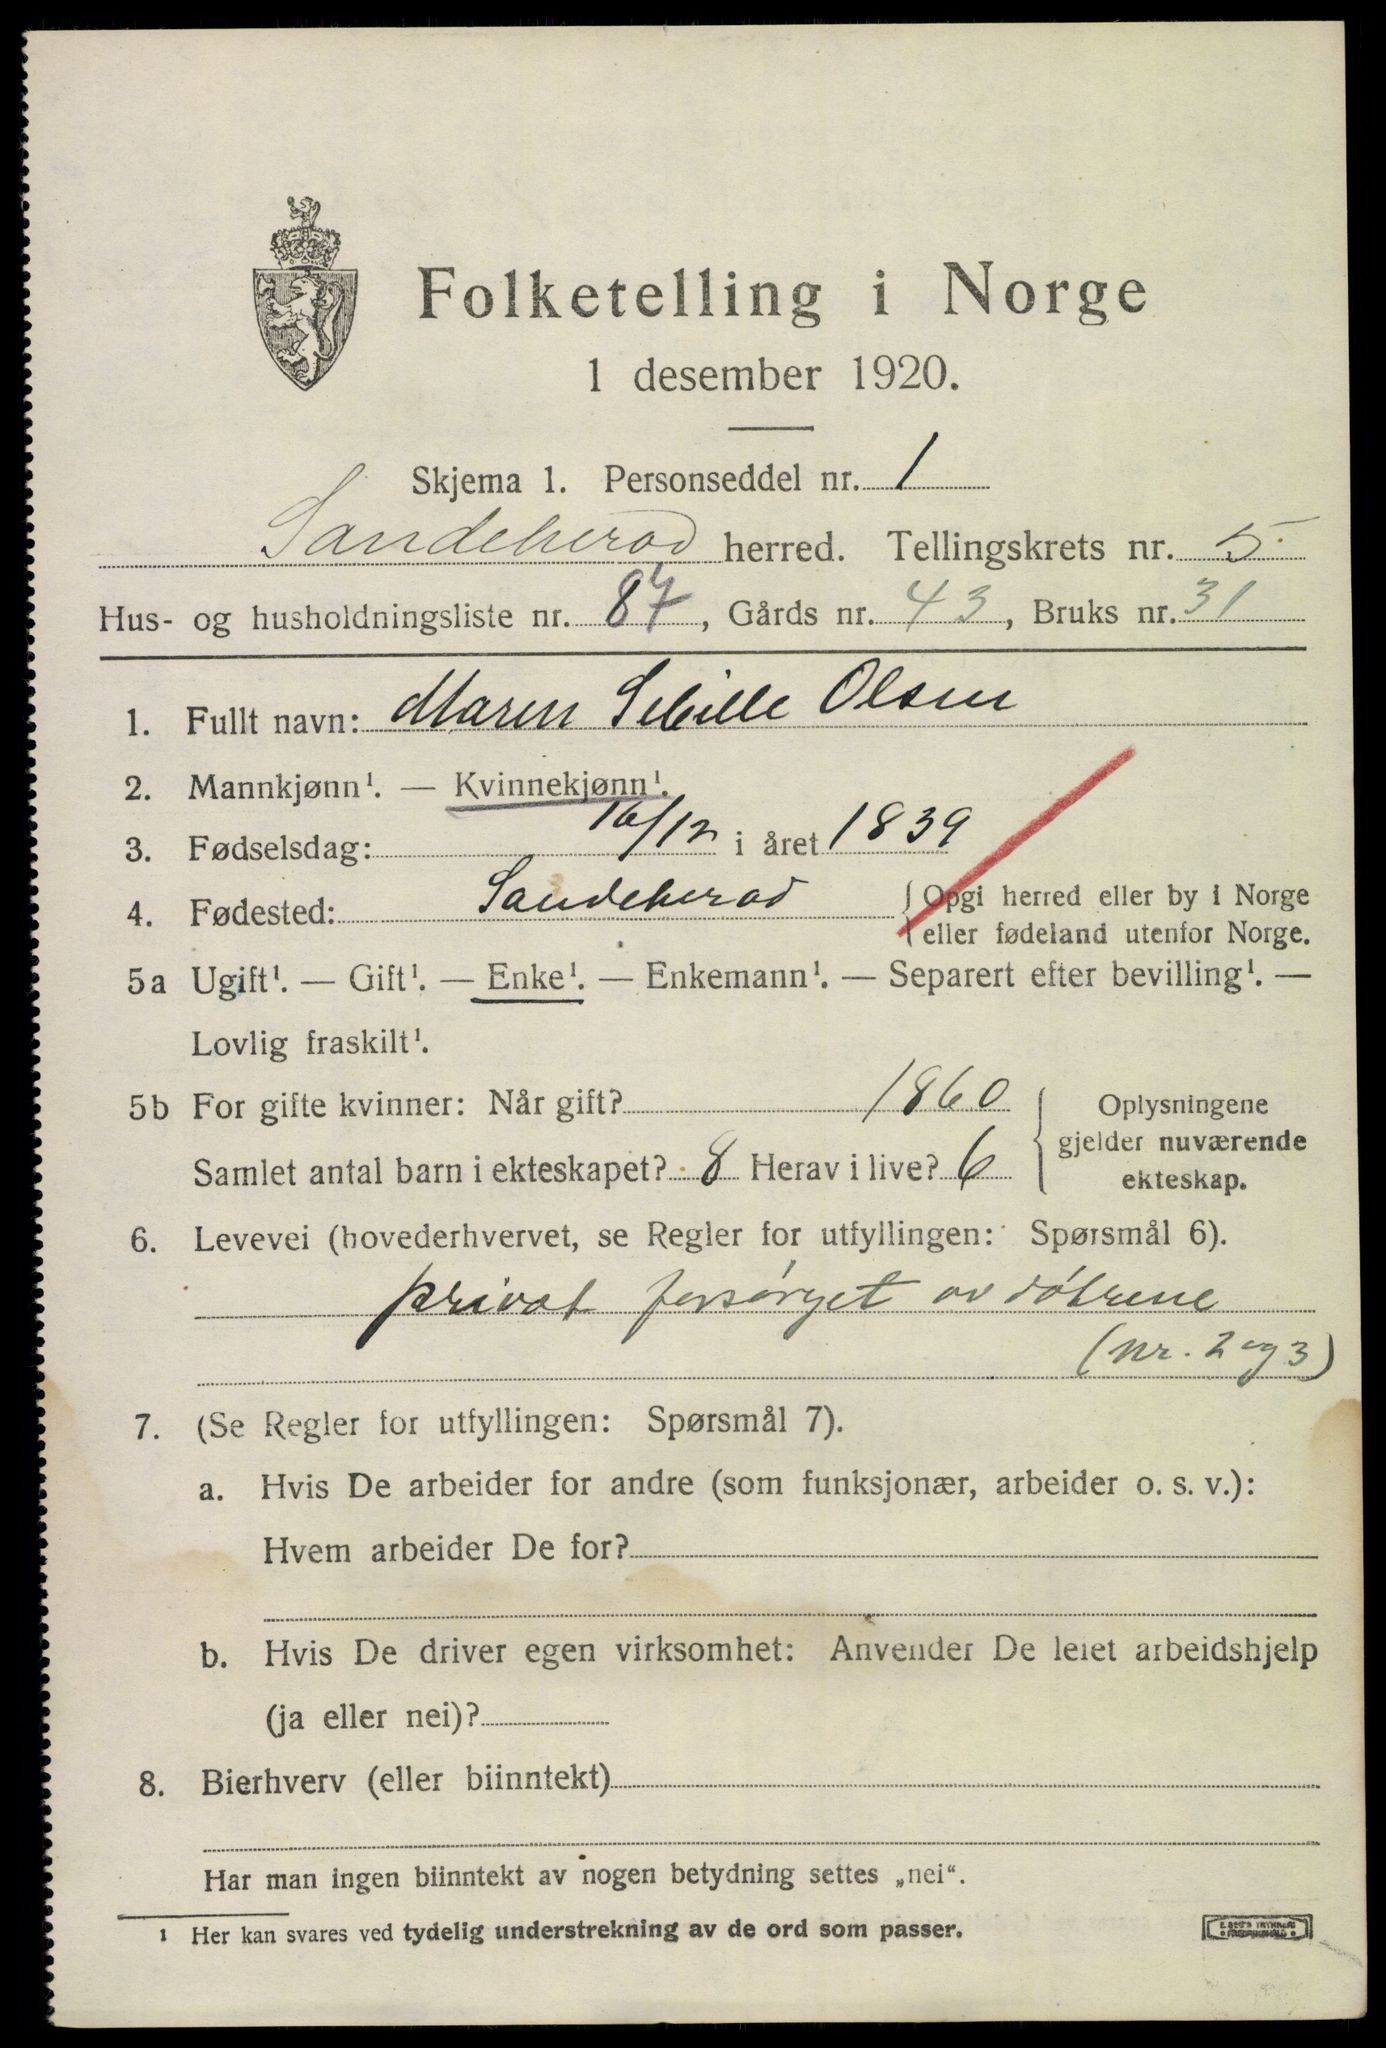 Folketelling i Norge
1 desember 1920.
Skjema 1. Personseddel nr. 1
Sandeherad herred. Tellingskrets nr. 5
Hus- og husholdningsliste nr. 87, Gårds nr. 43, Bruks nr. 31
1. Fullt navn: Maren Sibille Olsen
2. Mannkjønn¹. — Kvinnekjønn¹.
3. Fødselsdag: 16/12 i året 1839
4. Fødested: Sandeherad { Opgi herred eller by i Norge
eller fødeland utenfor Norge.
5a Ugift¹. — Gift¹. — Enke¹. — Enkemann¹. — Separert efter bevilling¹. —
Lovlig fraskilt¹.
5b For gifte kvinner: Når gift? 1860
Samlet antal barn i ekteskapet? 8 Herav i live? 6
Oplysningene
gjelder nuværende
ekteskap.
6. Levevei (hovederhvervet, se Regler for utfyllingen: Spørsmål 6).
privat forsørget av døtrene
(nr. 2 og 3)
7. (Se Regler for utfyllingen: Spørsmål 7).
a. Hvis De arbeider for andre (som funksjonær, arbeider o. s. v.):
Hvem arbeider De for?
b. Hvis De driver egen virksomhet: Anvender De leiet arbeidshjelp
(ja eller nei)?
8. Bierhverv (eller biinntekt)
Har man ingen biinntekt av nogen betydning settes „nei“.
¹ Her kan svares ved tydelig understrekning av de ord som passer.